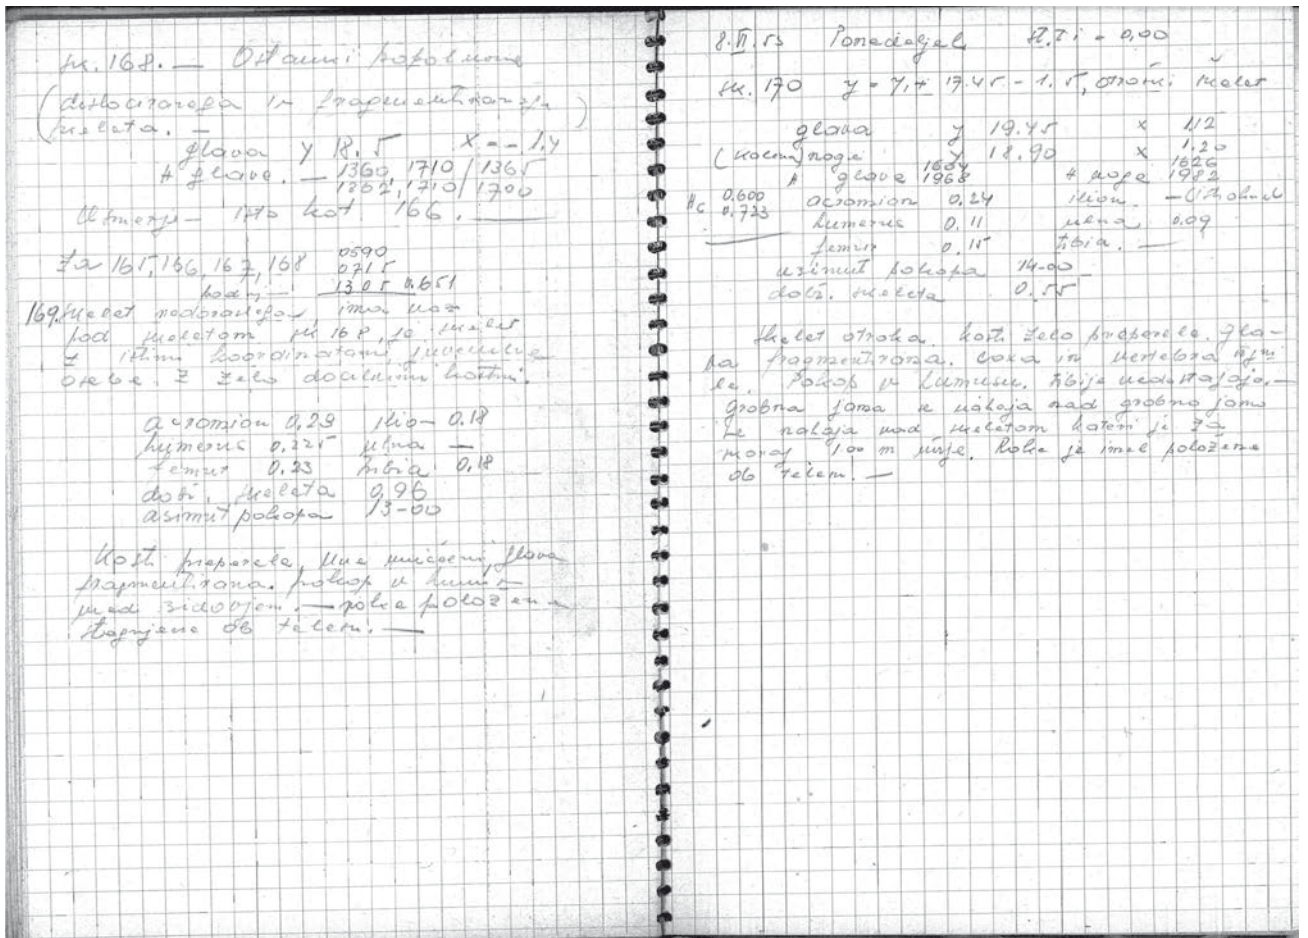 sk. 168. — Ostanki popolnoma
(dislociranega in fragmentiranega)
skeleta. —
glava y 18.5 x = - 1.4
H glave. — 1360, 1710 / 1365
1362, 1710 / 1700
Usmerje— isto kot 166. —
Za 165, 166, 167, 168 0590
0715
1305 0.651
169. skelet
pod skeletom sk 168, je skelet
z istimi koordinatami juvenilne
osebe. Z zelo kostmi.
acromion 0.29 ilio— 0.18
humerus 0.225 ulna —
femur 0.23 tibia 0.18
dolž. skeleta 0.96
asimut pokopa 13-00
Kosti preperele, glava
fragmentirana. pokop v
med zidovjem. — roke položene
stegnjene ob telesu. —
8. II. 53 Ponedeljek = 0,00
sk. 170 y = 7,+ 17.45 - 1.5, otroški skelet
glava y 19.45 x 1.12
noge y 18.90 x 1.20
1654 1626
H glave 1968 H noge 1982
Hc 0.600 acromion 0.24 ilion. —
0.723 humerus 0.11 ulna 0.09
femur 0.15 tibia. —
azimut pokopa 14-00
dolž. skeleta 0.55
Skelet otroka. kosti zelo preperele. Gla-
va fragmentirana. coxa in vertebra
Pokop v humusu. tibije nedostajajo. —
grobna jama se nahaja nad grobno jamo
se nahaja nad skeletom kateri je za
1.00 m nižje. Roke je imel položene
ob telesu. —